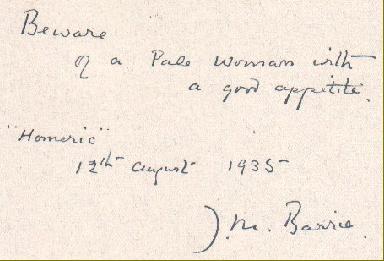 Beware
of a Pale Woman with
a good appetite.
"Homeric"
12th August 1935
J. M. Barrie.